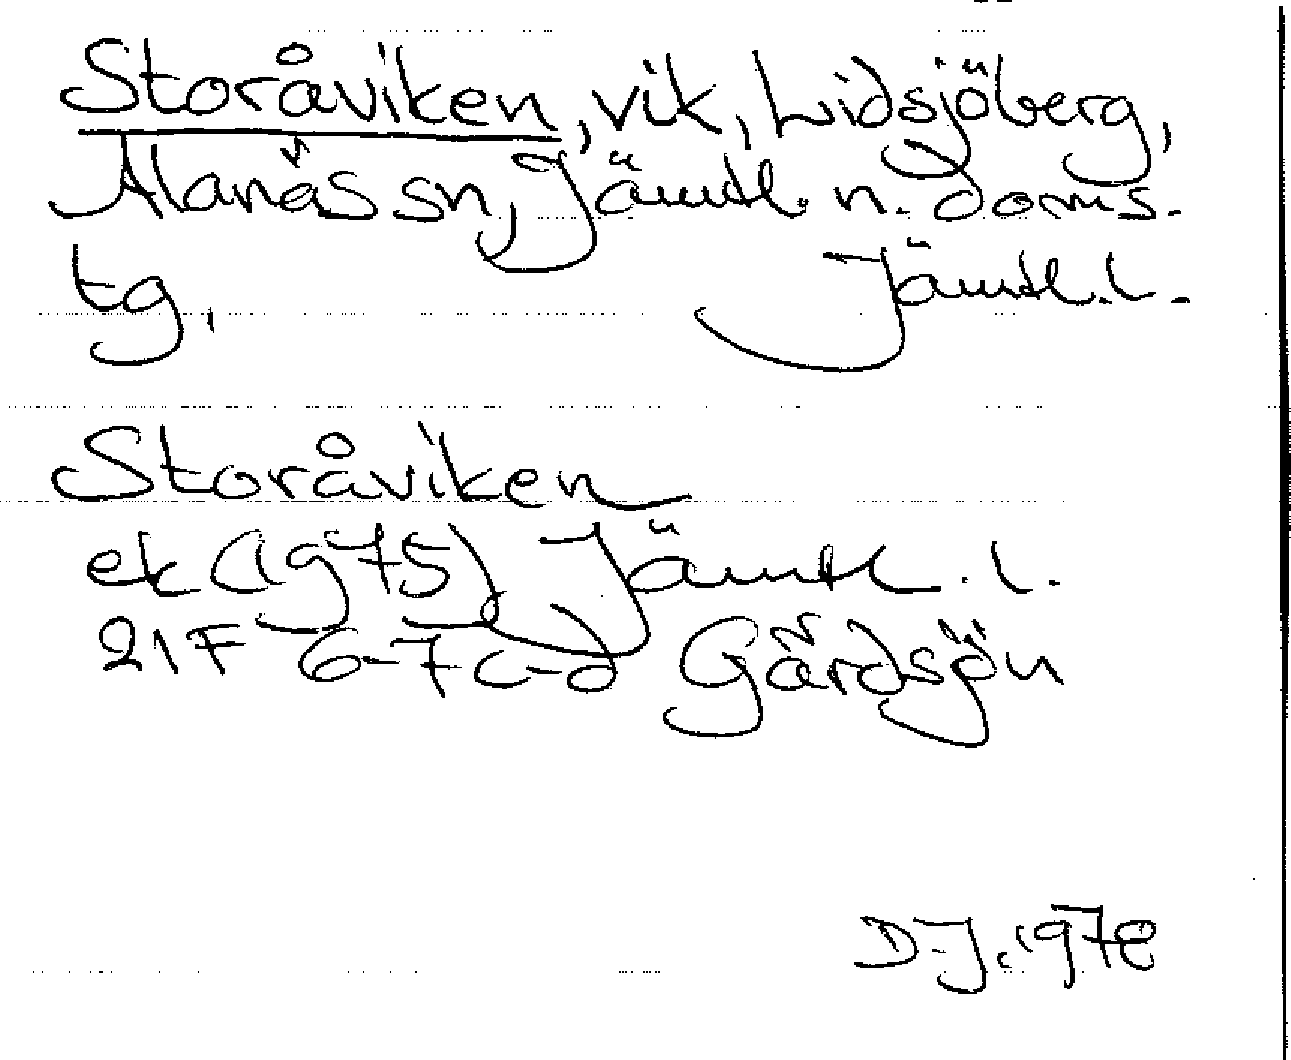 Storåviken, vik, Lidsjöberg,
Alanäs sn, Jämtl. n. doms.
tg, Jämtl. l.
Storåviken
ek (1975) Jämtl. l.
21F 6-7c-d Gårdsjön
D-J. 1978